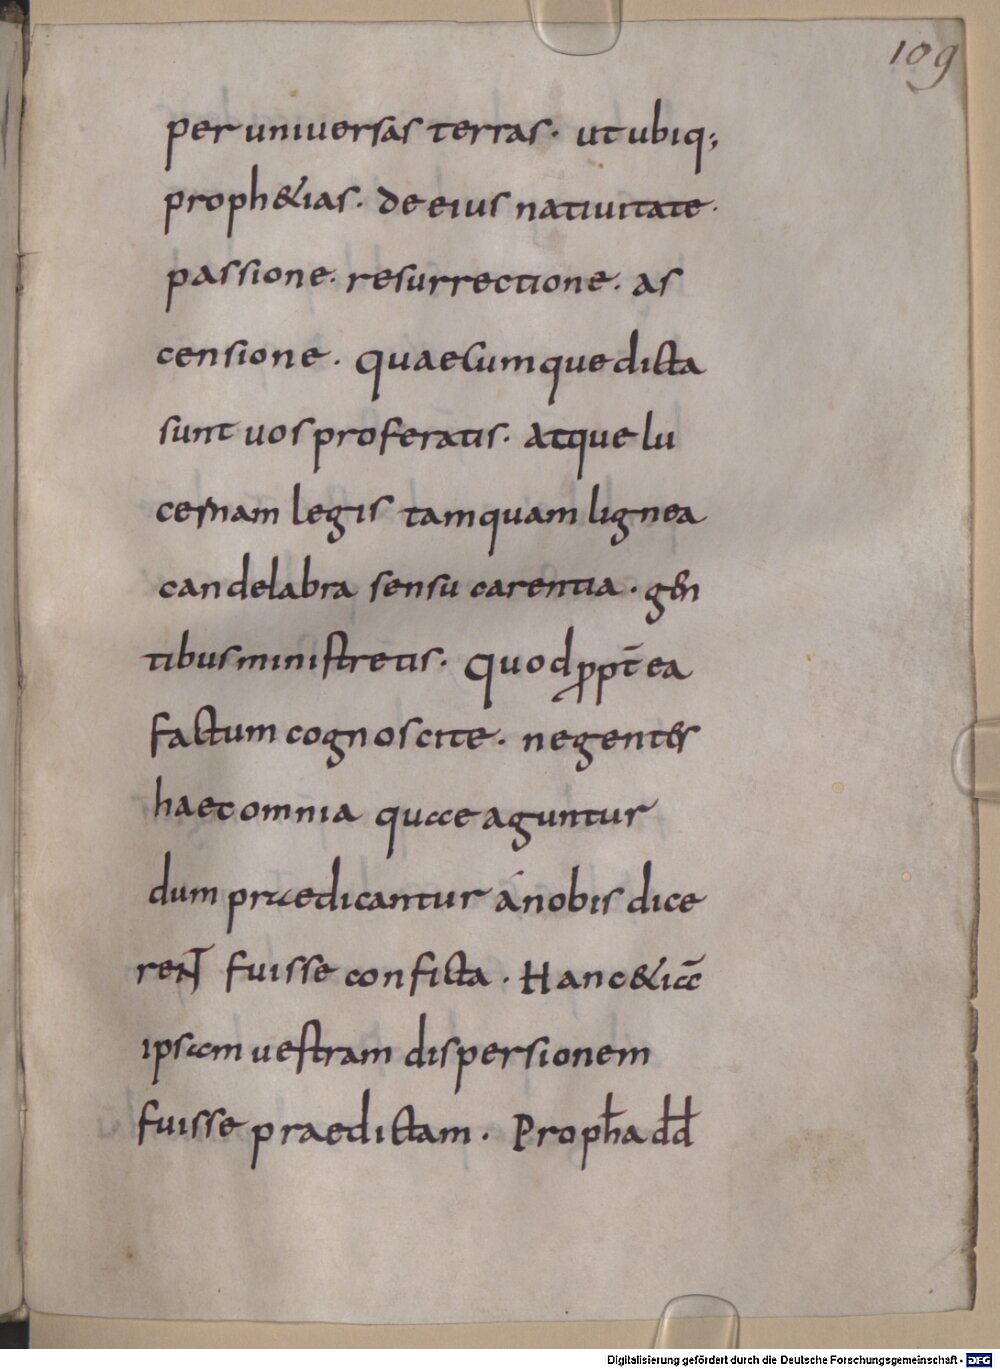 109
per uniuersas terras· ut ubiq;
proph&ias· de eius natiuitate·
passione· resurrectione· as
censione· quaecumque dicta
sunt uos proferatis· atque lu
cernam legis tamquam lignea
candelabra sensu carentia· gen
tibus ministretis· Quod ꝓpt̄ea
factum cognoscite· ne gentes
haec omnia quae aguntur
dum praedicantur á nobis dice
rent fuisse conficta· Hanc &iā
ipsam uestram dispersionem
fuisse praedictam· Proph̄a dd̄
Digitalisierung gefördert durch die Deutsche Forschungsgemeinschaft - DFG